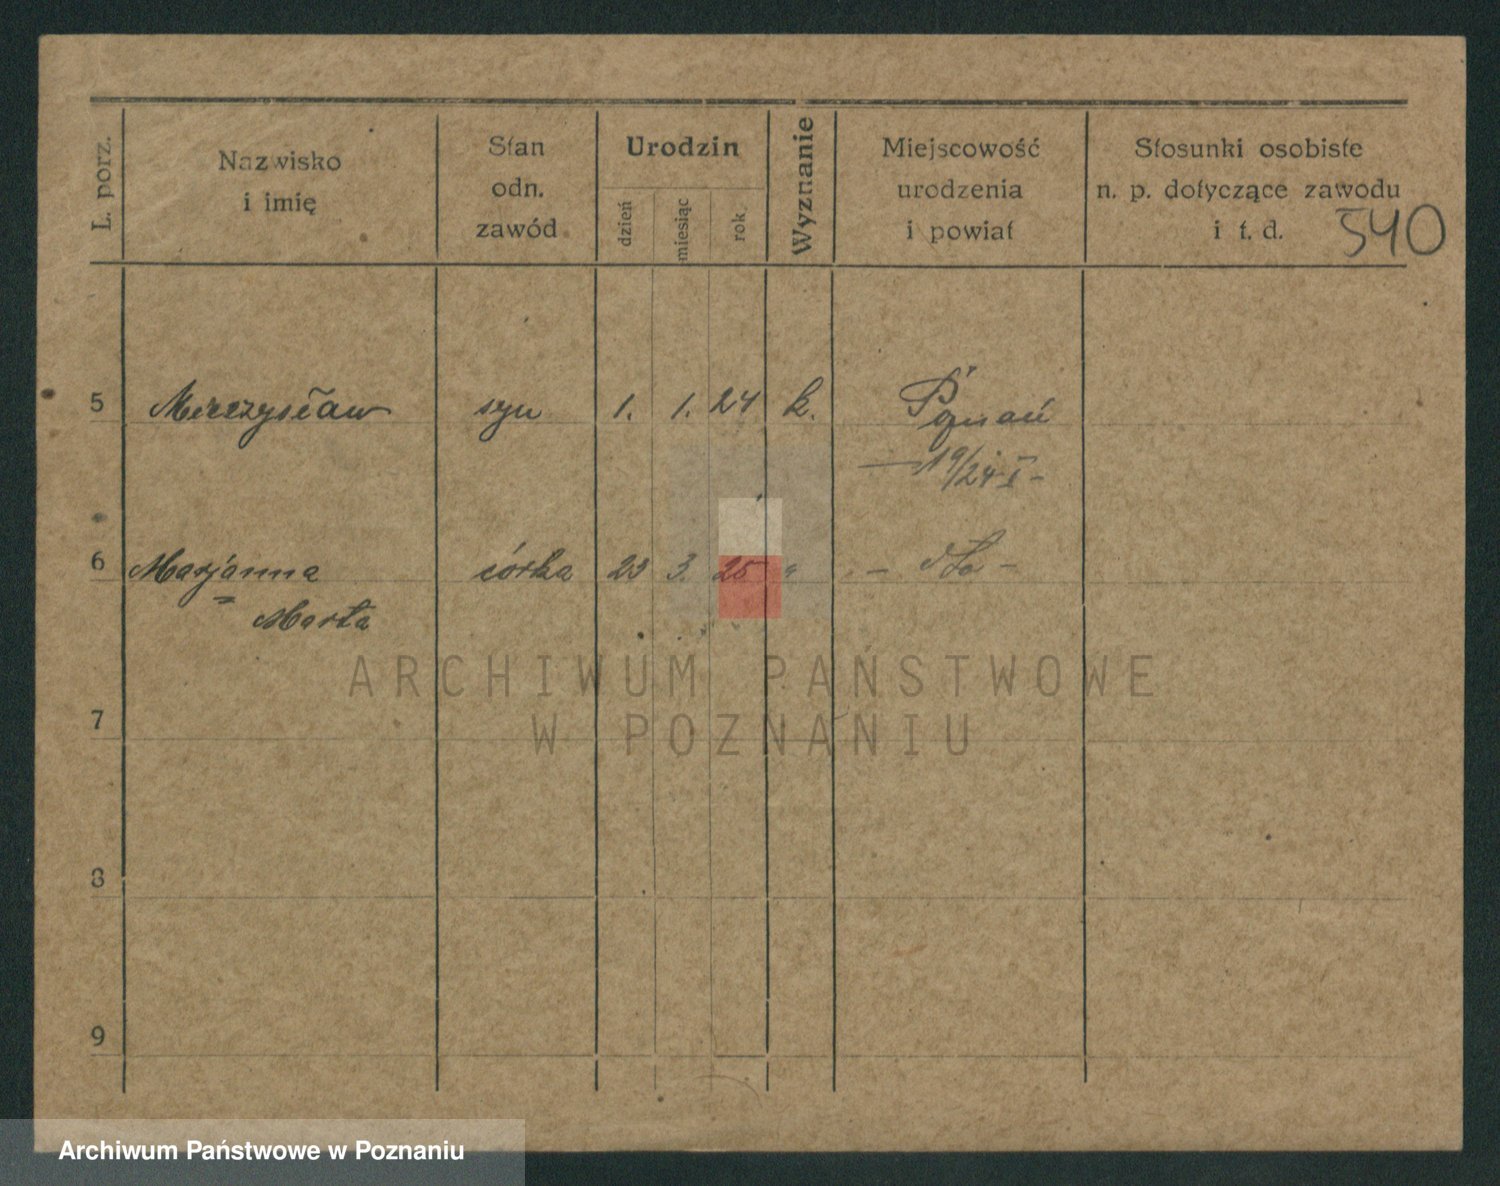 L. porz.
Nazwisko
i imię
Stan
odn.
zawód
Urodzin
dzień
miesiąc
rok
Wyznanie
Miejscowość
urodzenia
i powiat
Stosunki osobiste
n. p. dotyczące zawodu
i t. d.
540
5 Mieczysław syn 1. 1. 24 k. Poznań
19/24 I -
6 Marjanna córka 23 3. 25 " - dto -
= Marta
ARCHIWUM PAŃSTWOWE
W POZNANIU
7
8
9
Archiwum Państwowe w Poznaniu